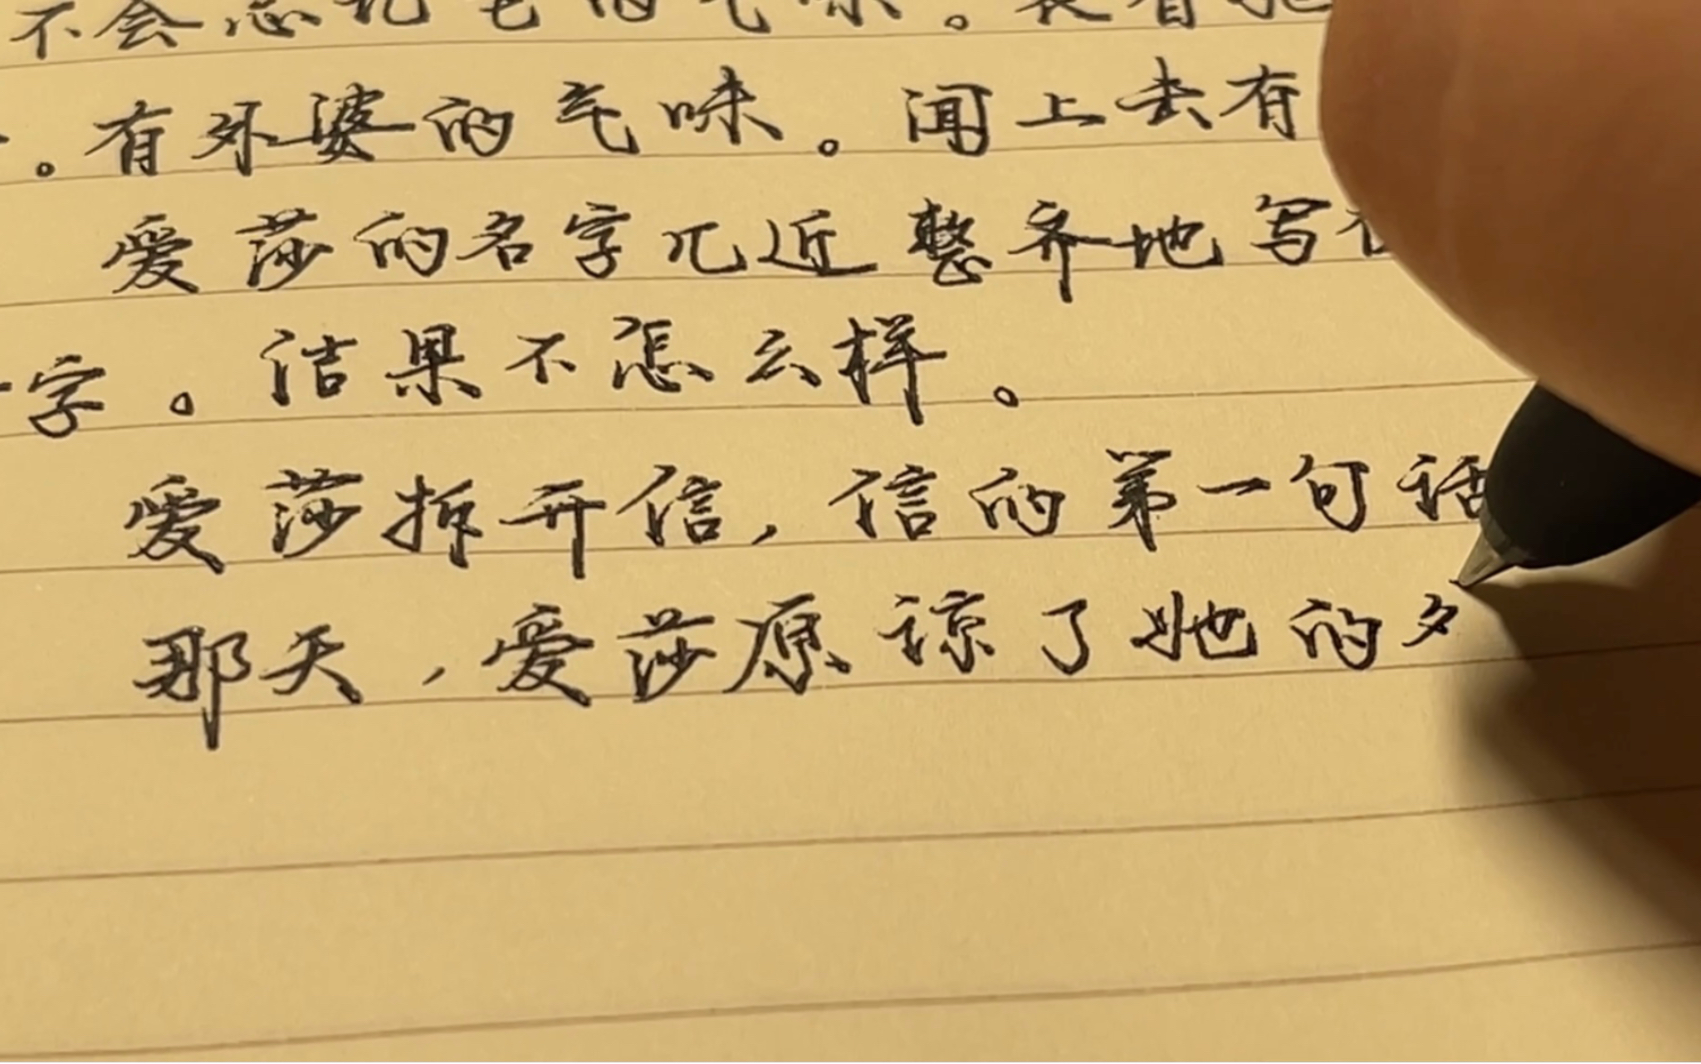 不会忘记它的气味。我看
。有外婆的气味。闻上去有
爱莎的名字几近整齐地写在
字。洁果不怎么样。
爱莎拆开信,信的第一句话
那天,爱莎原谅了她的夕